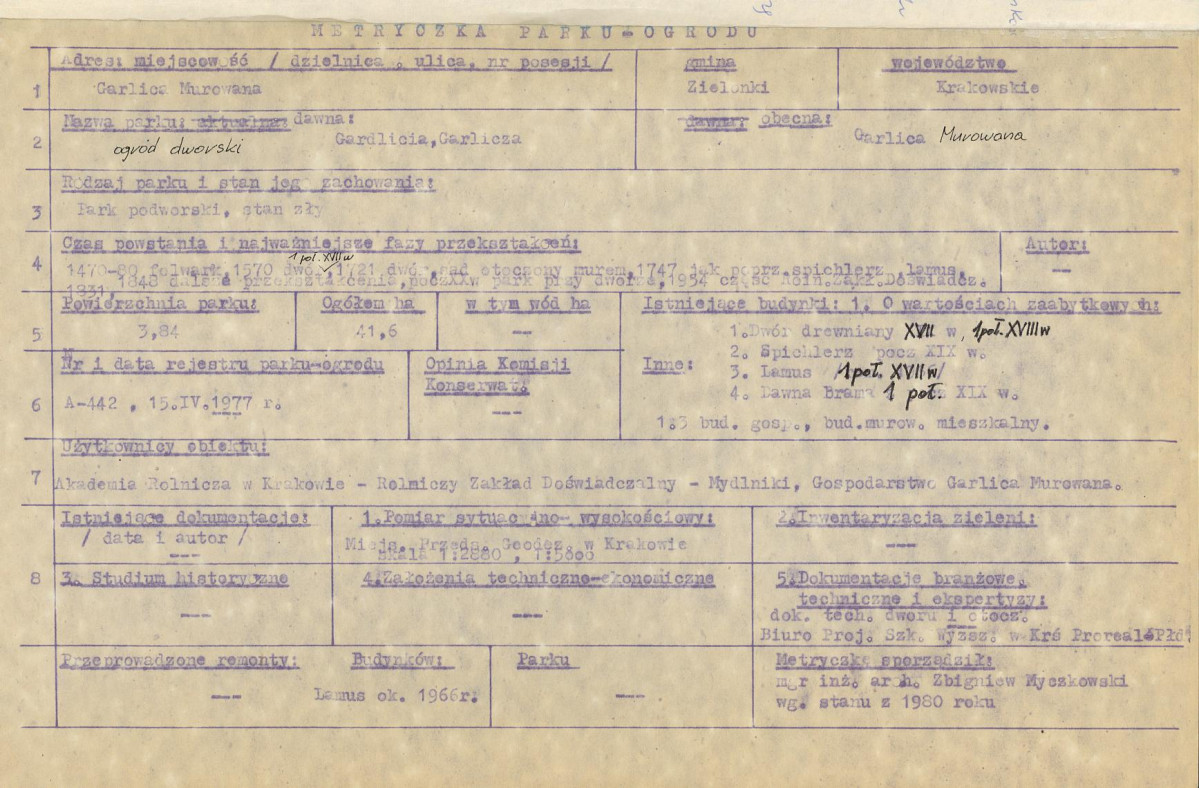 METRYCZKA PARKU-OGRODU
Adres: miejscowość / dzielnica, ulica, nr posesji / gmina województwo
1 Garlica Murowana Zielonki Krakowskie
Nazwa parku: aktualna: dawna: dawna: obecna:
2 ogród dworski Gardlicia, Garlicza Garlica Murowana
Rodzaj parku i stan jego zachowania:
3 Park podworski, stan zły
Czas powstania i najważniejsze fazy przekształceń: Autor:
1 poł. XVII w
4 1470-80 folwark, 1570 dwór, 1721 dwór, sad otoczony murem, 1747 jak poprz. spichlerz, lamus, --
1831, 1848 dalsze przekształcenia, pocz XX w park przy dworze, 1954 część Roln. Zakł. Doświadcz.
Powierzchnia parku: Ogółem ha w tym wód ha
5 3,84 41,6 --
Istniejące budynki: 1. O wartościach zaabytkowych:
1. Dwór drewniany XVII w, 1poł. XVIII w
2. Spichlerz pocz XIX w.
Inne: 3. Lamus /1 poł. XVII w/
4. Dawna Brama 1 poł. XIX w.
1.3 bud. gosp., bud.murow. mieszkalny.
Nr i data rejestru parku-ogrodu Opinia Komisji
Konserwat:
6 A-442 , 15.IV.1977 r. ---
Użytkownicy obiektu:
7 Akademia Rolnicza w Krakowie - Rolniczy Zakład Doświadczalny - Mydlniki, Gospodarstwo Garlica Murowana.
Istniejące dokumentacje: 1. Pomiar sytuacyjno- wysokościowy: 2. Inwentaryzacja zieleni:
/ data i autor / Miejs. Przeds. Geodez. w Krakowie ---
--- Skala 1:2880 , 1:5000
8 3. Studium historyczne 4. Założenia techniczno-ekonomiczne 5. Dokumentacje branżowe,
techniczne i ekspertyzy:
--- --- dok. tech. dworu i otocz.
Biuro Proj. Szk. Wyższ. w Kr
Przeprowadzone remonty: Budynków: Parku Metryczkę sporządził:
--- Lamus ok. 1966r. --- mgr inż. arch. Zbigniew Myczkowski
wg. stanu z 1980 roku